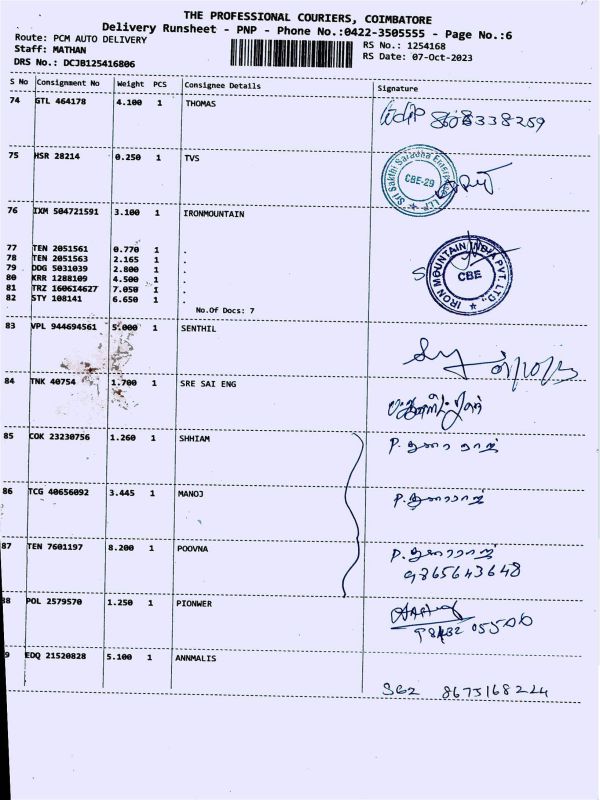 THE PROFESSIONAL COURIERS, COIMBATORE
Delivery Runsheet - PNP - Phone No.:0422-3505555 - Page No.:6
Route: PCM AUTO DELIVERY
RS No.: 1254168
Staff: MATHAN
RS Date: 07-Oct-2023
DRS No.: DCJB125416806
S No Consignment No Weight PCS Consignee Details Signature
74 GTL 464178 4.100 1 THOMAS
8608338259
75 HSR 28214 0.250 1 TVS
Sri Sakthi Saradha Enterprises LLP
CBE-29
76 IXM 504721591 3.100 1 IRONMOUNTAIN
77 TEN 2051561 0.770 1 .
78 TEN 2051563 2.165 1 .
79 DDG 5031039 2.800 1 .
80 KRR 1288109 4.500 1 .
81 TRZ 160614627 7.050 1 .
82 STY 108141 6.650 1 .
No.Of Docs: 7
IRON MOUNTAIN INDIA PVT. LTD.,
CBE
83 VPL 944694561 5.000 1 SENTHIL
84 TNK 40754 1.700 1 SRE SAI ENG
85 COK 23230756 1.260 1 SHHIAM
86 TCG 40656092 3.445 1 MANOJ
87 TEN 7601197 8.200 1 POOVNA
9865643648
88 POL 2579570 1.250 1 PIONWER
9 EDQ 21520828 5.100 1 ANNMALIS